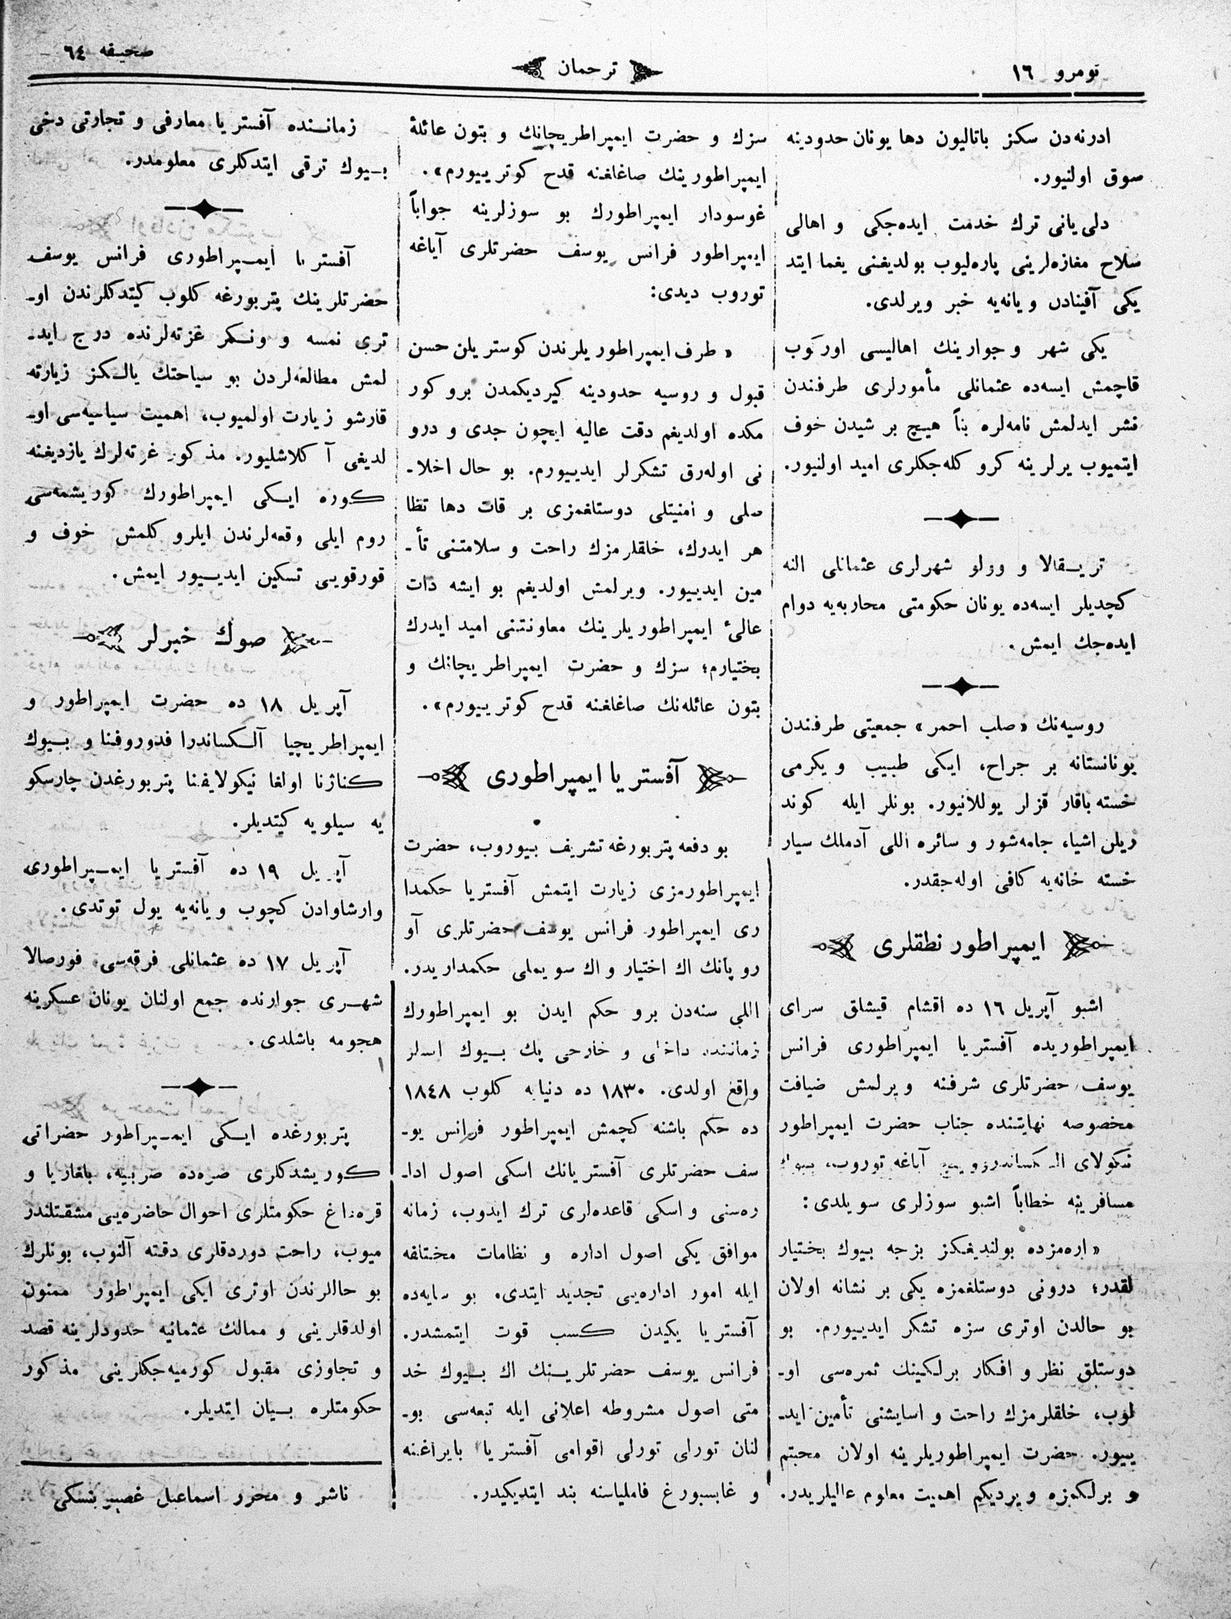 نومرو ١٦
ترجمان
صحیفه ٦٤
ادرنه‌دن سکز باتالیون دها یونان حدودینه
سوق اولنیور.
دلی یانی ترك خدمت ایده‌جکی و اهالی
سلاح مغازه‌لرینی پاره‌لیوب بولدیغنی یغما ایتد
یکی آفینادن ویانه‌یه خبر ویرلدی.
یکی شهر وجوارینك اهالیسی اورکوب
قاچمش ایسه‌ده عثمانلی مأمورلری طرفندن
نشر ایدلمش نامه‌لره بناً هیچ بر شیدن خوف
ایتمیوب یرلرینه کرو کله‌جکلری امید اولنیور.
تریقالا و وولو شهرلری عثمانلی النه
کچدیلر ایسه‌ده یونان حکومتی محاربه‌یه دوام
ایده‌جك ایمش.
روسیه‌نك «صلب احمر» جمعیتی طرفندن
یونانستانه بر جراح، ایکی طبیب ویکرمی
خسته باقار قزلر یوللانیور. بونلر ایله کوند
ریلن اشیا، جامه‌شور و سائره اللی آدملك سیار
خسته خانه‌یه کافی اوله‌جقدر.
ایمپراطور نطقلری
اشبو آپریل ١٦ ده اقشام قیشلق سرای
ایمپراطوریده آفستریا ایمپراطوری فرانس
یوسف حضرتلری شرفنه ویرلمش ضیافت
مخصوصه نهایتنده جناب حضرت ایمپراطور
نیکولای الکساندروویچ آیاغه توروب، بیوك
مسافرینه خطاباً اشبو سوزلری سویلدی:
« اره‌مزده بولندیغکز بزجه بیوك بختیار
لقدر؛ درونی دوستلغمزه یکی بر نشانه اولان
بو حالدن اوتری سزه تشکر ایدییورم. بو
دوستلق نظر و افکار برلکینك ثمره‌سی او۔
لوب، خلقلرمزك راحت و اسایشنی تأمین اید۔
ییور. حضرت ایمپراطوریلرینه اولان محبتم
و برلکمزه ویردیکم اهمیت معلوم عالیلریدر.
سزك و حضرت ایمپراطریچانك و بتون عائلهٔ
ایمپراطورینك صاغلغنه قدح کوترییورم».
غوسودار ایمپراطورك بو سوزلرینه جواباً
ایمپراطور فرانس یوسف حضرتلری آیاغه
توروب دیدی:
« طرف ایمپراطوریلرندن کوستریلن حسن
قبول و روسیه حدودینه کیردیکمدن برو کور
مکده اولدیغم دقت عالیه ایچون جدی و درو
نی اوله‌رق تشکرلر ایدییورم. بو حال اخلا۔
صلی و امنیتلی دوستلغمزی بر قات دها تظا
هر ایدرك، خلقلرمزك راحت و سلامتنی تأ۔
مین ایدییور. ویرلمش اولدیغم بو ایشه ذات
عالیٔ ایمپراطوریلرینك معاونتنی امید ایدرك
بختیارم؛ سزك و حضرت ایمپراطریچانك و
بتون عائله‌نك صاغلغنه قدح کوترییورم».
آفستریا ایمپراطوری
بو دفعه پتربورغه تشریف بیوروب، حضرت
ایمپراطورمزی زیارت ایتمش آفستریا حکمدا
ری ایمپراطور فرانس یوسف حضرتلری آو
روپانك اك اختیار و اك سویملی حکمداریدر.
اللی سنه‌دن برو حکم ایدن بو ایمپراطورك
زماننده داخلی و خارجی پك بیوك ایشلر
واقع اولدی. ١٨٣٠ ده دنیایه کلوب ١٨٤٨
ده حکم باشنه کچمش ایمپراطور فرانس یو۔
سف حضرتلری آفستریانك اسکی اصول ادا۔
ره‌سنی و اسکی قاعده‌لری ترك ایدوب، زمانه
موافق یکی اصول اداره و نظامات مختلفه
ایله امور اداره‌یی تجدید ایتدی. بو سایه‌ده
آفستریا یکیدن کسب قوت ایتمشدر.
فرانس یوسف حضرتلرینك اك بیوك خد
متی اصول مشروطه اعلانی ایله تبعه‌سی بو۔
لنان تورلی تورلی اقوامی آفستریا بایراغنه
و غابسبورغ فاملیاسنه بند ایتدیکیدر.
زماننده آفستریا معارفی و تجارتی دخی
بیوك ترقی ایتدکلری معلومدر.
آفستریا ایمپراطوری فرانس یوسف
حضرتلرینك پتربورغه کلوب کیتدکلرندن او۔
تری نمسه و ونکر غزته‌لرنده درج اید۔
لمش مطالعه‌لردن بو سیاحتك یالکز زیارته
قارشو زیارت اولمیوب، اهمیت سیاسیه‌سی او۔
لدیغی آکلاشلیور. مذکور غزته‌لرك یازدیغنه
کوره ایکی ایمپراطورك کوریشمه‌سی
روم ایلی وقعه‌لرندن ایلرو کلمش خوف و
قورقویی تسکین ایدییور ایمش.
صوك خبرلر
آپریل ١٨ ده حضرت ایمپراطور و
ایمپراطریچیا آلکساندرا فدوروفنا و بیوك
کنازنا اولغا نیکولایفنا پتربورغدن چارسکو
یه سیلویه کیتدیلر.
آپریل ١٩ ده آفستریا ایمپراطوری
وارشاوادن کچوب ویانه‌یه یول توتدی.
آپریل ١٧ ده عثمانلی فرقه‌سی فورصالا
شهری جوارنده جمع اولنان یونان عسکرینه
هجومه باشلدی.
پتربورغده ایکی ایمپراطور حضراتی
کوریشدکلری صره‌ده صربیه، بلغاریا و
قره‌داغ حکومتلری احوال حاضره‌یی مشقتلندر
میوب، راحت دوردقلری دقته آلنوب، بونلرك
بو حاللرندن اوتری ایکی ایمپراطور ممنون
اولدقلرینی و ممالك عثمانیه حدودلرینه قصد
و تجاوزی مقبول کورمیه‌جکلرینی مذکور
حکومتلره بیان ایتدیلر.
ناشر و محرر اسماعیل غصپرینسکی